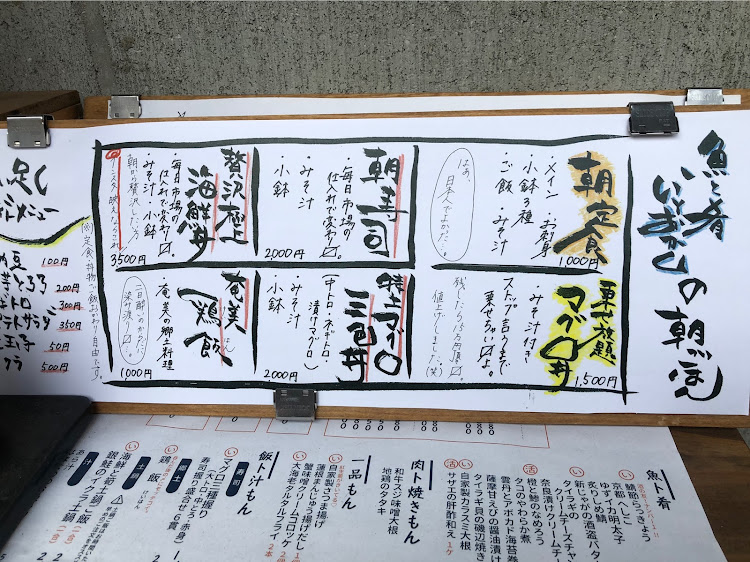 魚と肴
いとおかし
の朝ごはん
朝定食
・メイン・お刺身
・小鉢3種
・ご飯・みそ汁
はぁ、
日本人でよかった。
1,000円
乗せ放題
マグロ丼
・みそ汁付き
ストップ言うまで
乗せちゃい〼よ。
残したら15万頂〼。
値上げしました。(笑)
1,500円
朝寿司
・毎日市場の
仕入れで変わり〼。
・みそ汁
・小鉢
2000円
特上マグロ
三色丼
(中トロ・ネギトロ・
漬けマグロ)
・みそ汁
・小鉢
2000円
贅沢極上
海鮮丼
・毎日市場の
仕入れで変わり〼。
・みそ汁・小鉢
朝から贅沢したい方
3500円
奄美
鶏飯
はん
・奄美の郷土料理
二日酔いのかたに
染み渡り〼。
1000円
(例)定食・丼物ご飯おかわり自由です。
100円
200円
300円
ポテトサラダ
350円
50円
500円
魚ト肴
鯖節らっきょう
京都へしこ
ゆずイカ明太子
炙りしめ鯖
新じゃがの酒盗バタ
タイラギの
クリームチーズチャン
奈良漬けクリームチー
活
橙と鯵のなめろう
タコのやわらか煮
雲丹とアボカド海苔巻
薩摩甘えびの醤油漬け
タイラギ貝の磯辺焼き
い
自家製カラスミ大根
活
サザエの肝酢和え
1ケ
肉ト焼きもん
和牛スジ味噌大根
地鶏のタタキ
一品もん
い
自家製さつま揚げ
蓮根まんじゅう揚げだし
蟹味噌クリームコロッケ
大海老タルタルフライ
飯ト汁もん
寿司
マグロ三種握り
(中トロ・トロ・赤身)
寿司握り盛合せ
郷土
い
鶏飯
土鍋
い
海鮮と筍の土鍋ご飯
銀鮭のイクラ土鍋
汁